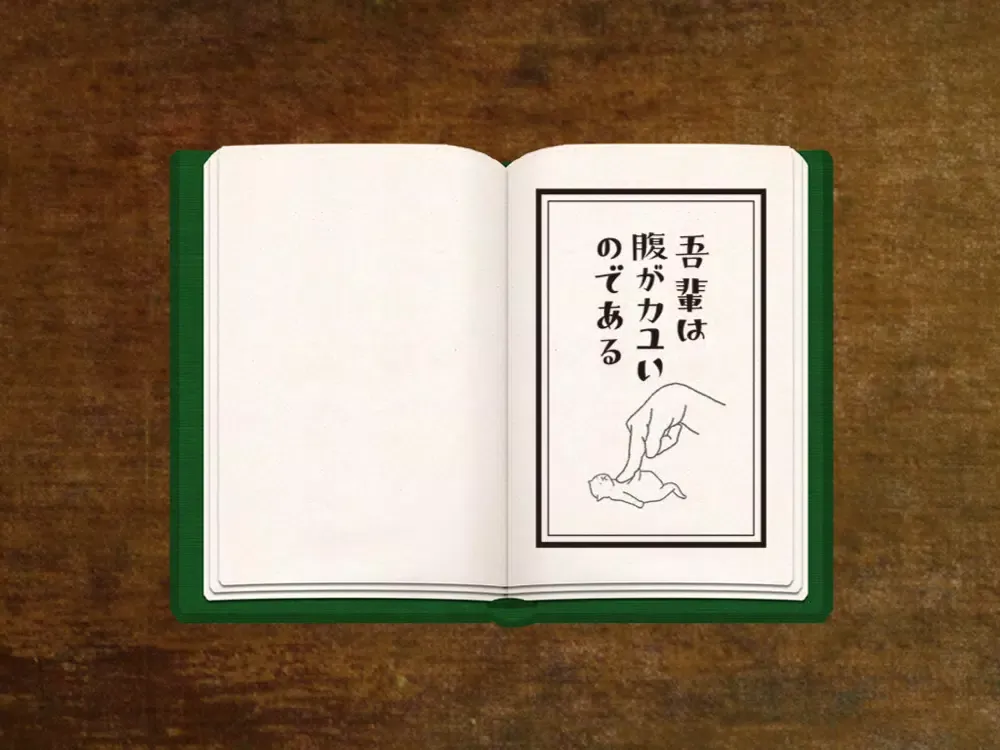 吾輩は
腹がカユい
のである